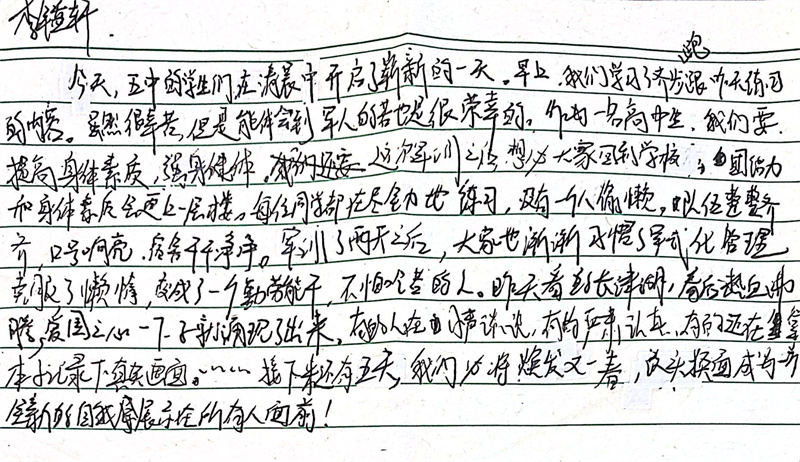 李 轩
跑
今天,五中的学生们,在清晨中开启了崭新的一天。早上,我们学习了齐步跟昨天练习
的内容。虽然很辛苦,但是能体会到军人的苦也是很荣幸的。作为一名高中生,我们要
提高身体素质,强身健体。这次军训之后想必大家回到学校,团结力
和身体素质会更上一层楼。每位同学都在尽全力地练习,没有一个人偷懒。队伍整整齐
齐,口号响亮,宿舍干干净净。军训了两天之后,大家也渐渐习惯了军式化管理
克服了懒惰,变成了一个勤劳能干,不怕吃苦的人。昨天看到长津湖,看后热血沸
腾,爱国之心一下子就涌现了出来。有的人在小声谈说,有的严肃认真,有的还在
本上记录下真实画面。…… 接下来还有五天,我们必将焕发又一春,改头换面成为一个
全新的自我展示在所有人面前!